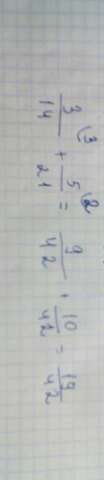 3/14 (3 + 5/21 (2 = 9/42 + 10/42 = 19/42